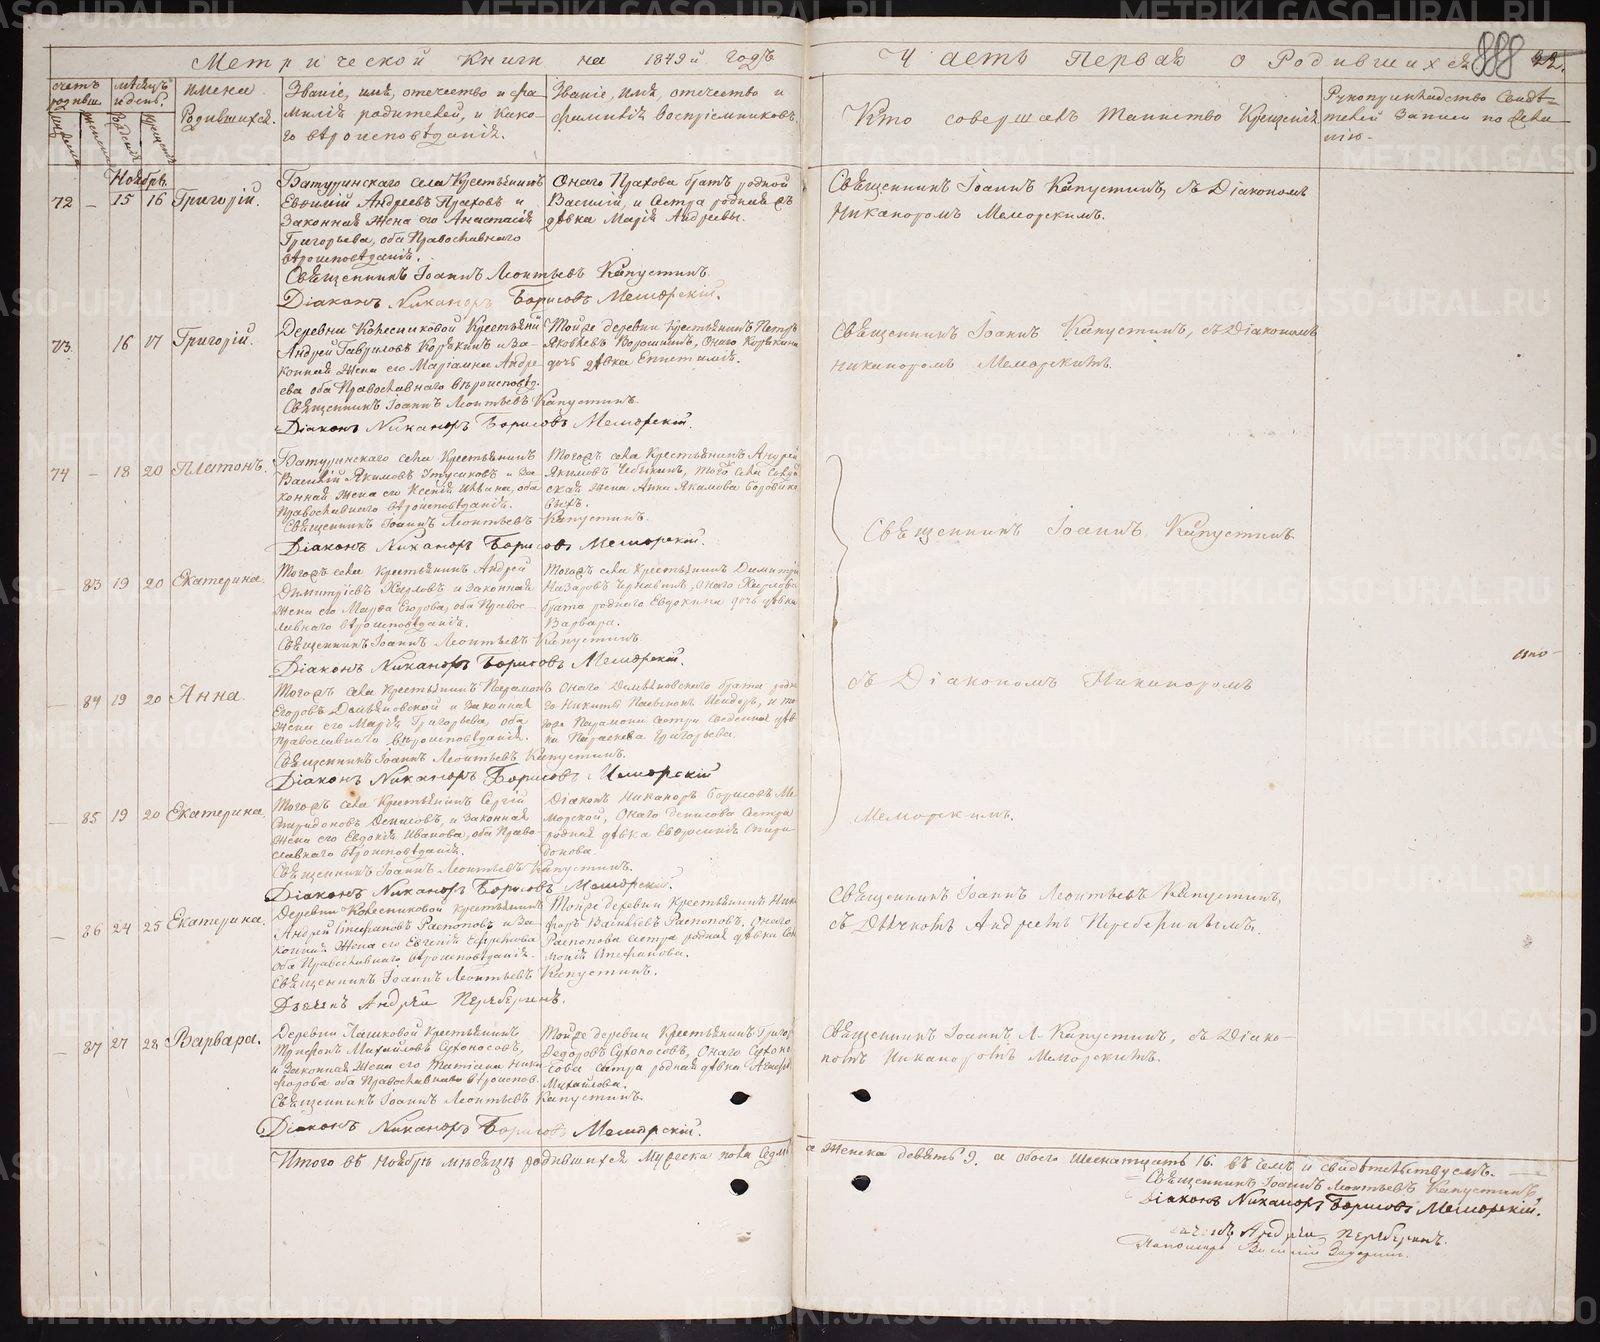 Метрической Книги на 1849й годъ
Часть Первая о Родившихся
888
22.
счетъ родивш.
мѣсяцъ и день.
имена Родившихся.
Званіе, имя, отечество и фамилія родителей, и какого вѣроисповѣданія.
Званіе, имя, отечество и фамилія воспріемниковъ.
Кто совершалъ Таинство Крещенія
Рукоприкладство свидѣтелей записи по желанію.
Ноябрь
72 – 15 16 Григорій.
Батуринскаго села Крестьянинъ
Евѳимій Андреевъ Праховъ и
Законная жена его Анастасія
Григорьева, оба Православнаго
вѣроисповѣданія.
Онаго Прахова братъ родной
Василій, и сестра родная
дѣвка Марія Андреевы.
Священникъ Іоаннъ Капустинъ, съ Діакономъ
Никаноромъ Меморскимъ.
Священникъ Іоаннъ Леонтьевъ Капустинъ.
Діаконъ Никаноръ Борисовъ Меморскій.
73. 16 17 Григорій.
Деревни Колесниковой Крестьянинъ
Андрей Гавриловъ Корякинъ и за-
конная жена его Маріамна Андре-
ева оба Православнаго вѣроисповѣд.
Тойже деревни Крестьянинъ Петръ
Яковлевъ Ворошнинъ, онаго Корякина
дочь дѣвка Епистимія.
Священникъ Іоаннъ Капустинъ, съ Діакономъ
Никаноромъ Меморскимъ.
Священникъ Іоаннъ Леонтьевъ Капустинъ.
Діаконъ Никаноръ Борисовъ Меморскій.
74 – 18 20 Платонъ.
Батуринскаго села Крестьянинъ
Василій Якимовъ и за-
конная жена его Ксенія Ивана, оба
Православнаго вѣроисповѣданія.
Тогожъ села Крестьянинъ Андрей
Якимовъ Чебыкинъ, того села
жена Анна Якимова
Священникъ Іоаннъ Леонтьевъ Капустинъ.
Діаконъ Никаноръ Борисовъ Меморскій.
Священникъ Іоаннъ Капустинъ
съ Діакономъ Никаноромъ
Меморскимъ.
– 83 19 20 Екатерина.
Тогожъ села Крестьянинъ Андрей
Димитріевъ и законная
жена его Марѳа Егорова, оба Правос-
лавнаго вѣроисповѣданія.
Тогожъ села Крестьянинъ Димитрій
Назаровъ Чернавинъ, онаго
брата роднаго Евдокима дочь дѣвка
Варвара.
Священникъ Іоаннъ Леонтьевъ Капустинъ
Діаконъ Никаноръ Борисовъ Меморскій.
– 84 19 20 Анна.
Тогожъ села Крестьянинъ Парамонъ
Егоровъ Демьяновской и законная
жена его Марія Григорьева, оба
Православнаго вѣроисповѣданія.
Онаго Демьяновскаго брата родна-
го Никиты
Парамона сестра сведенная дѣв-
ка Параскева Григорьева.
Священникъ Іоаннъ Леонтьевъ Капустинъ.
Діаконъ Никаноръ Борисовъ Меморскій
– 85 19 20 Екатерина.
Тогожъ села Крестьянинъ Сергій
Спиридоновъ Денисовъ, и законная
жена его Евдокія Иванова, оба Право-
славнаго вѣроисповѣданія.
Діаконъ Никаноръ Борисовъ Ме-
морской, Онаго Денисова сестра
родная дѣвка Евфросинія Спири-
донова
Священникъ Іоаннъ Леонтьевъ Капустинъ.
Діаконъ Никаноръ Борисовъ Меморскій.
– 86 24 25 Екатерина
Деревни Колесниковой Крестьянинъ
Андрей Стефановъ Распоповъ и за-
конная жена его Евгенія
оба Православнаго вѣроисповѣданія.
Тойже деревни Крестьянинъ Ники-
форъ Васильевъ Распоповъ, онаго
Распопова сестра родная дѣвка Со-
монія Стефанова.
Священникъ Іоаннъ Леонтьевъ Капустинъ,
съ Дьячкомъ Андреемъ Переберинымъ.
Священникъ Іоаннъ Леонтьевъ Капустинъ.
Дьячекъ Андрей Переберинъ.
– 87 27 28 Варвара.
Деревни Крестьянинъ
Трифонъ Михайловъ Сухоносовъ,
и Законная жена его Татіана Ники-
форова оба Православнаго вѣроисповѣд.
Тойже деревни Крестьянинъ Григор.
Ѳедоровъ Сухоносовъ, Онаго Сухоно-
сова сестра родная дѣвка
Михайлова.
Священникъ Іоаннъ Л. Капустинъ, съ Діако-
номъ Никаноромъ Меморскимъ.
Священникъ Іоаннъ Леонтьевъ Капустинъ.
Діаконъ Никаноръ Борисовъ Меморскій.
Итого въ Ноябрѣ мѣсяцѣ родившихся Мужеска пола седмь
а женска девять 9. а обоего шеснатцать 16. въ чемъ и свидѣтельствуемъ.
Священникъ Іоаннъ Леонтьевъ Капустинъ
Діаконъ Никаноръ Борисовъ Меморскій.
Андрей Переберинъ.
Пономарь Василій